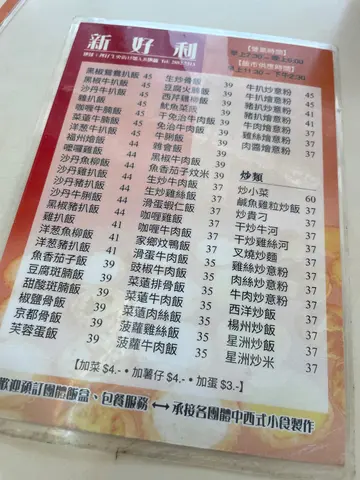 新好利
【營業時間】
早上7:30 - 晚上9:00
【飯市供應時間】
早上11:30 - 下午2:30
黑椒鴛鴦扒飯 45
黑椒牛扒飯 45
沙丹牛扒飯 45
雞扒飯 45
咖喱牛腩飯 45
菜薳牛腩飯 44
洋葱牛扒飯 45
福州燴飯 44
嚤囉雞飯 44
沙丹魚柳飯 44
沙丹雞扒飯 44
沙丹豬扒飯 44
沙丹牛脷飯 44
黑椒豬扒飯 44
雞扒飯 44
洋葱豬扒飯 44
洋葱魚柳飯 44
魚香茄子飯 39
豆腐斑腩飯 39
甜酸斑腩飯 39
椒鹽骨飯 39
京都骨飯 39
芙蓉蛋飯 39
生炒骨飯 39
豆腐火腩飯 39
西芹雞柳飯 39
魷魚菜飯
干免治牛肉飯
免治牛肉飯
牛脷飯
雜會飯
黑椒牛肉飯
魚香茄子炆米 39
生炒牛肉飯
生炒雞飯
滑蛋蝦仁飯
咖喱雞飯
咖喱牛肉飯
家鄉炆鴨飯
滑蛋牛肉飯
豉椒牛肉飯
菜薳排骨飯
菜薳牛肉飯 35
菜薳肉絲飯 35
菠蘿雞飯 35
菠蘿牛肉飯 35
牛扒炒意粉 41
雞扒炒意粉 41
豬扒炒意粉 41
牛肉燴意粉 41
雞絲燴意粉 41
肉醬燴意粉 41
炒類
炒小菜 60
鹹魚雞粒炒飯 37
炒貴刁 37
干炒牛河 37
干炒雞絲河 37
叉燒炒麵 37
雞絲炒意粉 37
肉絲炒意粉 37
牛肉炒意粉 37
西洋炒飯 37
楊州炒飯 37
星洲炒飯 37
星洲炒米 37
【加菜 $4.- • 加薯仔 $4.- • 加蛋 $3.-】
歡迎預訂團體飯盒、包餐服務 ↔ 承接各團體中西式小食製作